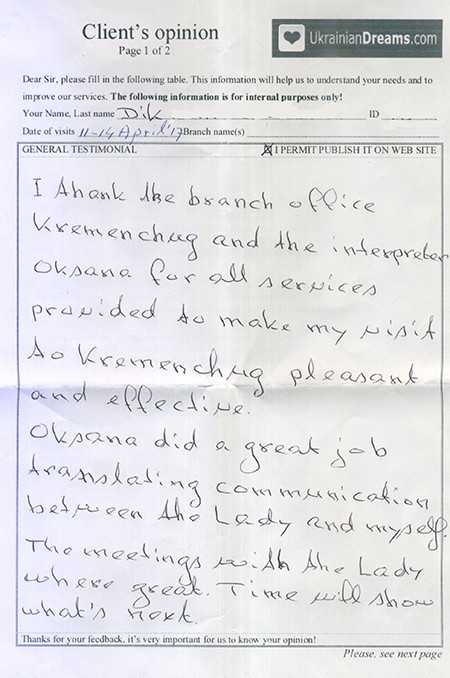 Client's opinion
Page 1 of 2
UkrainianDreams.com
Dear Sir, please fill in the following table. This information will help us to understand your needs and to
improve our services. The following information is for internal purposes only!
Your Name, Last name Dik ID
Date of visits 11-14 April'17 Branch name(s)
GENERAL TESTIMONIAL I PERMIT PUBLISH IT ON WEB SITE
I thank the branch office
Kremenchug and the interpreter
Oksana for all services
provided to make my visit
to Kremenchug pleasant
and effective.
Oksana did a great job
translating communication
between the Lady and myself.
The meetings with the Lady
where great. Time will show
what's next.
Thanks for your feedback, it's very important for us to know your opinion!
Please, see next page